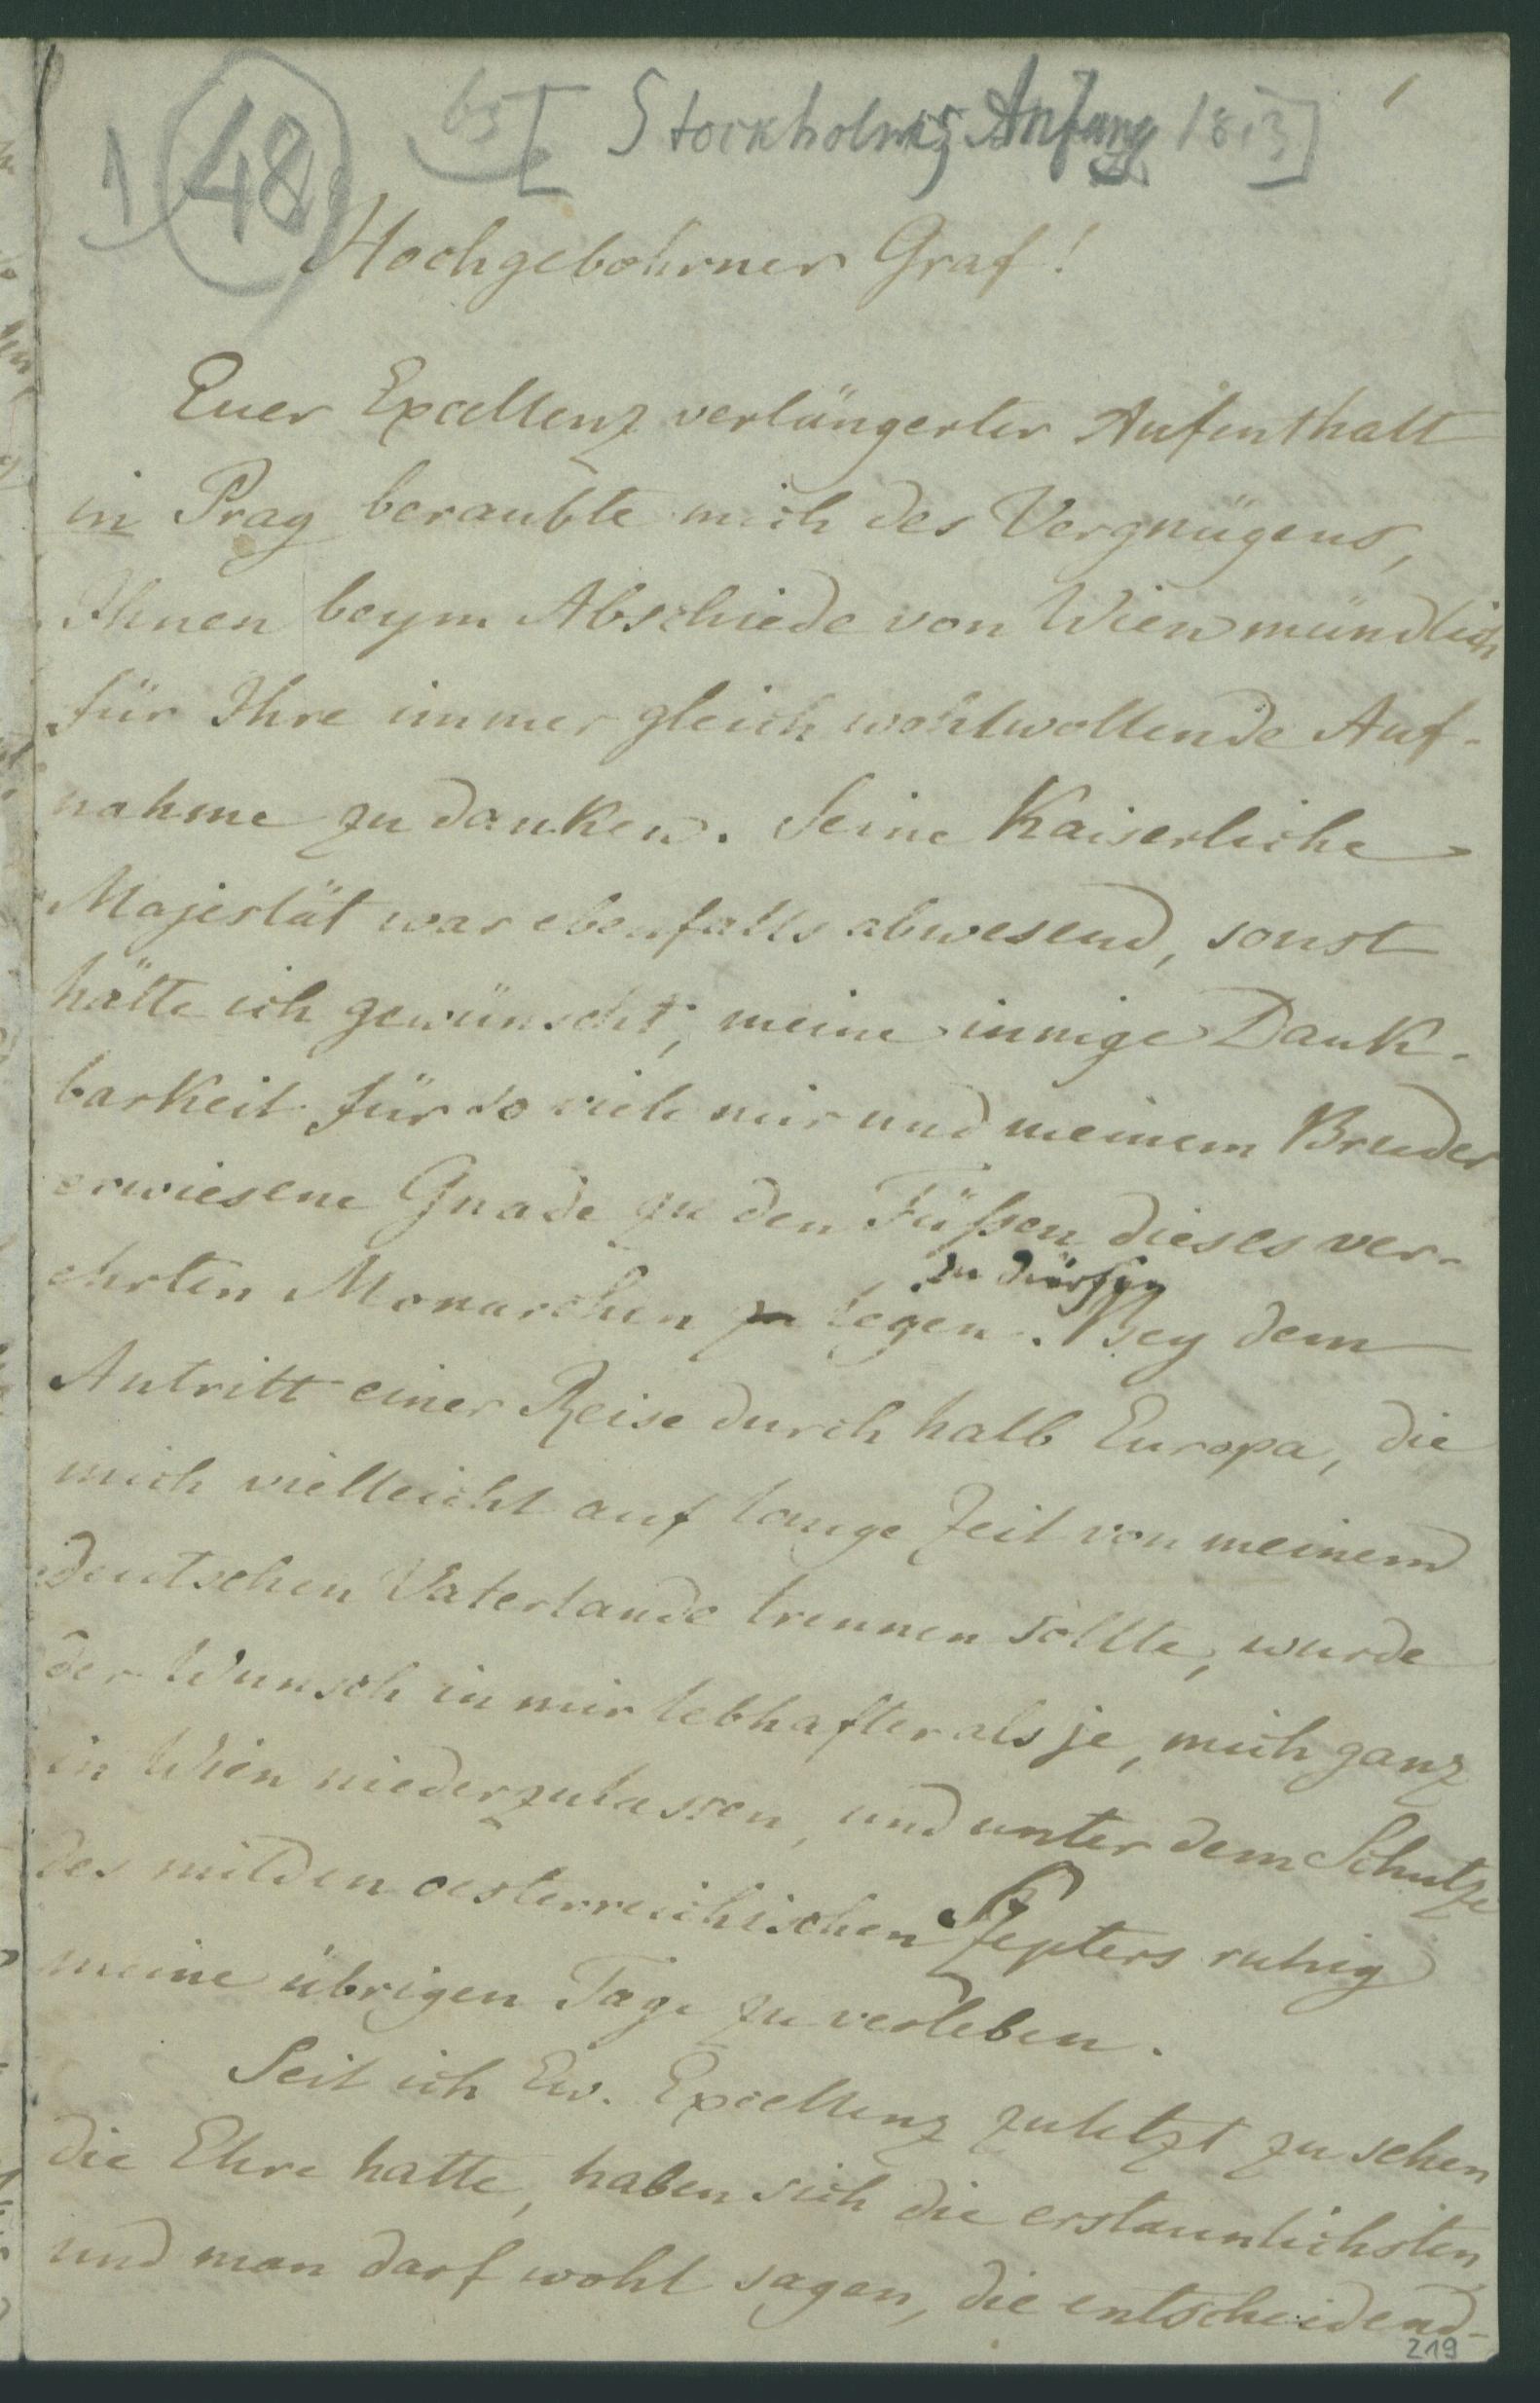 1 (48) b5 [Stockholm, Anfang 1813] 1
Hochgebohrner Graf!
Euer Excellenz verlängerter Aufenthalt
in Prag beraubte mich des Vergnügens,
Ihnen beym Abschiede von Wien mündlich
für Ihre immer gleich wohlwollende Auf-
nahme zu danken. Seine Kaiserliche
Majestät war ebenfalls abwesend, sonst
hätte ich gewünscht, meine innige Dank-
barkeit für so viele mir und meinem Bruder
erwiesene Gnade zu den Füßen dieses ver-
zu dürfen
ehrten Monarchen zu legen. Bey dem
Antritt einer Reise durch halb Europa, die
mich vielleicht auf lange Zeit von meinem
deutschen Vaterlande trennen sollte, wurde
der Wunsch in mir lebhafter als je, mich ganz
in Wien niederzulassen, und unter dem Schutze
des milden oesterreichischen Szepters ruhig
meine übrigen Tage zu verleben.
Seit ich Ew. Excellenz zuletzt zu sehen
die Ehre hatte, haben sich die erstaunlichsten,
und man darf wohl sagen, die entscheidend-
219